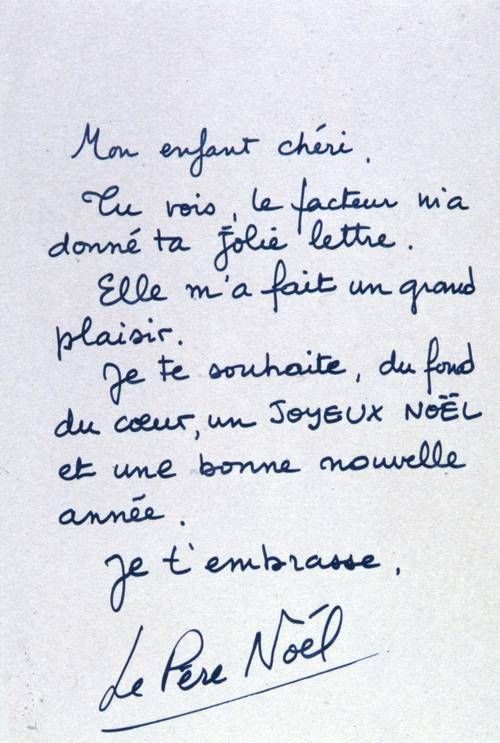 Mon enfant chéri,
Tu vois, le facteur m'a
donné ta jolie lettre.
Elle m'a fait un grand
plaisir.
Je te souhaite, du fond
du cœur, un JOYEUX NOËL
et une bonne nouvelle
année.
Je t'embrasse,
Le Père Noël